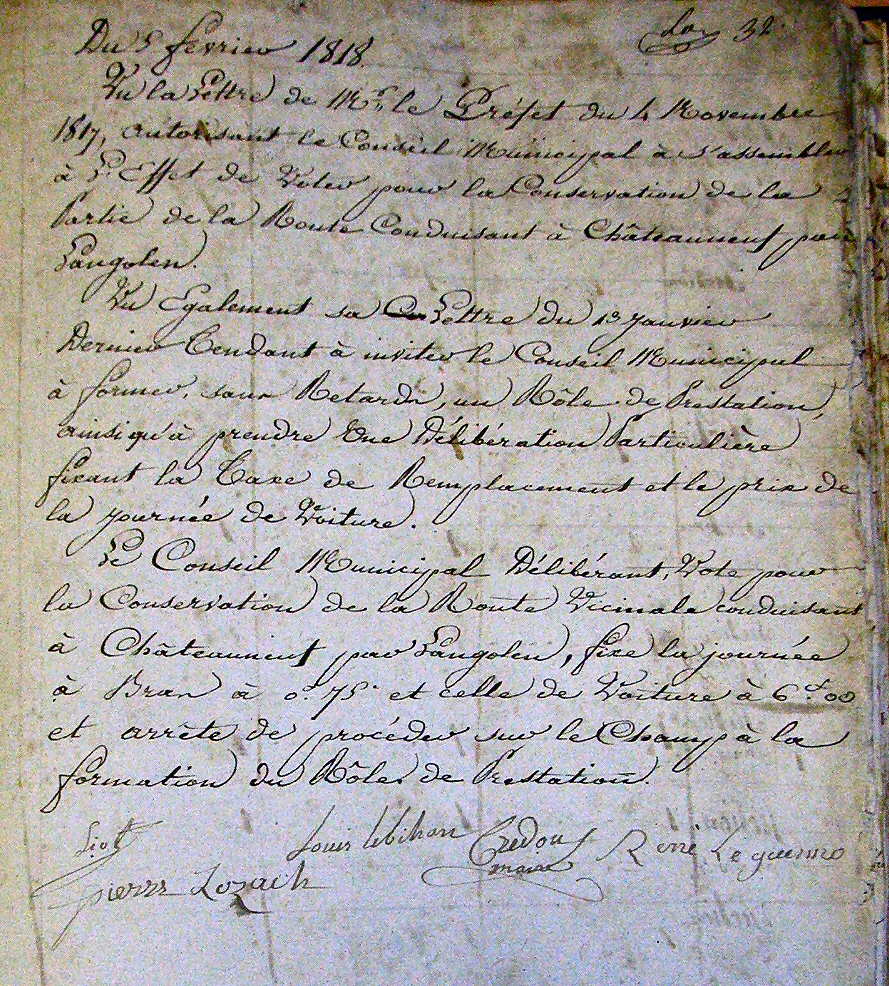 Du 5 février 1818.
32
Vu la Lettre de Mr. le Préfet du 4 Novembre
1817, autorisant le Conseil Municipal à s'assembler
à l'Effet de Voter pour la Conservation de la
Partie de la Route Conduisant à Châteauneuf par
Langolen.
Vu Egalement sa Lettre du 12 Janvier
Dernier Tendant à inviter le Conseil Municipal
à former, sans Retards, un Rôle de Prestation,
ainsi qu'à prendre Une Délibération Particulière
fixant la Taxe de Remplacement et le prix de
la journée de Voiture.
Le Conseil Municipal Délibérant, Vote pour
la Conservation de la Route Vicinale conduisant
à Châteauneuf par Langolen, fixe la journée
à Bras à 0.f 75.c et celle de Voiture à 6.f 00
et arrête de procéder sur le Champ à la
formation du Rôle de Prestation.
Liot Louis lebihan Credou René Le guenno
maire
pierre Lozach